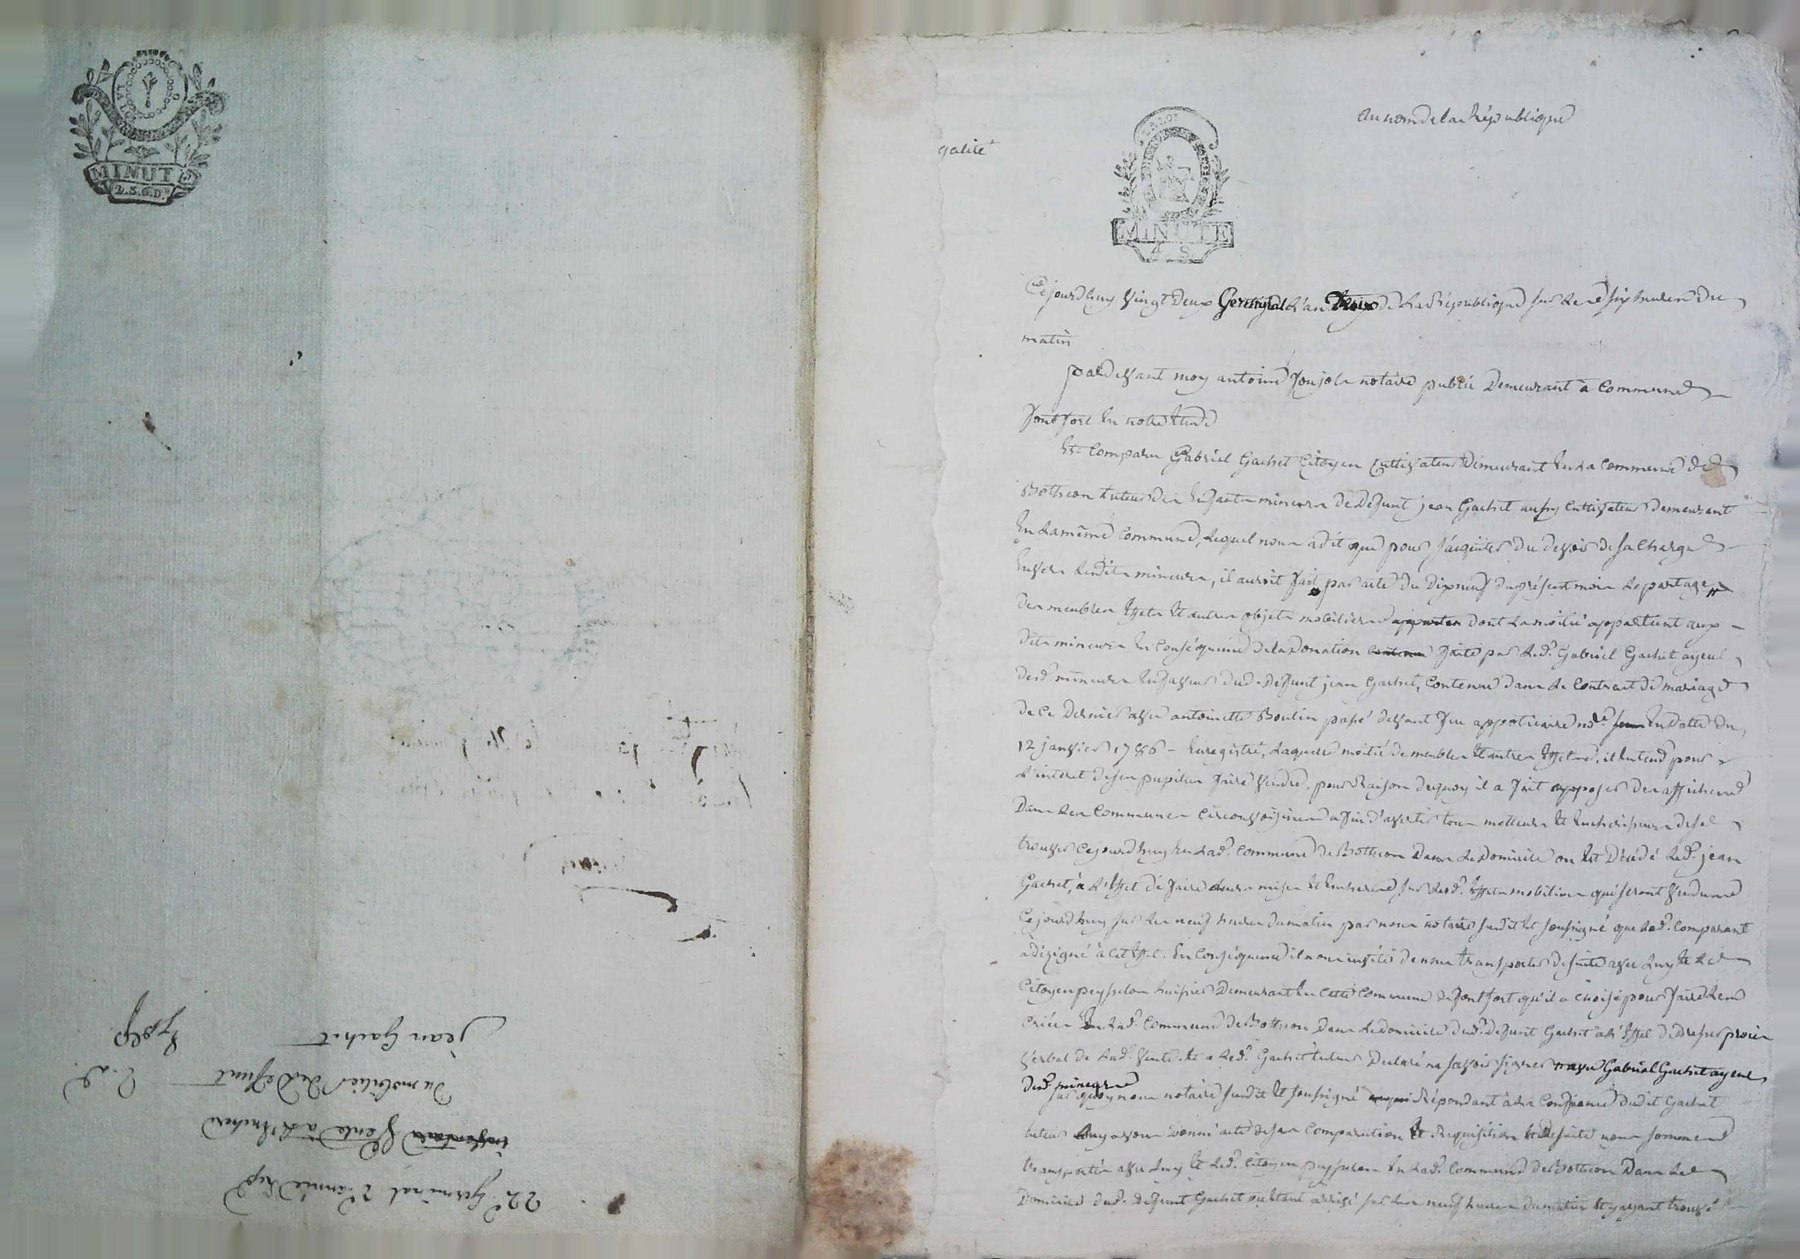 LA LOI
MINUTE
2. S. 6. D.
22 germinal 2e année rep
inventaire Vente à L'Encher
du mobilier de Defunt
jean Gachet
galité
LA LOI
MINUTE
4 S
au nom de la République
Cejourdhuy Vingt deux Germinal L'an de La République sur Les six heures du
matin
pardevant moy antoine notaire public Demeurant à Commune
fontfort En notre Etude
Est Comparu Gabriel Gachet Citoyen Cultivateur Demeurant En La Commune de
Bothéon tuteur des Enfants mineurs de Defunt jean Gachet aussy Cultivateur demeurant
En La même Commune, Lequel nous a dit que pour s'acquiter du devoir de sa Charge
Envers Lesdits mineurs, il auroit fait par acte du dixneuf du présent mois Le partage
des meubles Effets Et autres objets mobiliers appartten dont La moitié appartient aux
dits mineurs En Conséquence de La Donation faite par Led. Gabriel Gachet ayeul
desd. mineurs En faveur dud. Defunt jean Gachet, Contenue dans Le Contract de mariage
de Ce Dernier avec antoinette Boulin passé devant feu apoticaire nore En datte du
12 janvier 1786 - Enregistré, Laquelle moitié de meubles Et autres Effets, il Entend pour
L'intéret de ses pupilles faire Vendre, pour Raison dequoy il a fait apposer des affiches
Dans Les Communes Circonvoisines affin d'avertir tous metteurs Et Encherisseurs de se
trouver Cejourdhuy En Lad. Commune de Bothéon Dans Le Domicile ou Est Décédé Led. jean
Gachet, à L'Effet de faire Leurs mises Et Encheres sur Lesd. Effets mobiliers qui seront Vendus
Cejourdhuy sur Les neuf heures du matin par nous notaire susdit Et soussigné que Led. Comparant
a dézigné à Cet Effet. En Conséquence il nous invités de nous transporter de suite avec Luy Et Le
Citoyen peysselon huissier Demeurant En Cette Commune de fontfort qu'il a choisi pour faire Les
Criées En Lad. Commune de Bothéon Dans Le domicile dud. Defunt Gachet à L'Effet de dresser procès
Verbal de Lad. Vente Et a Led. Gachet tuteur Declaré ne savoir signer avec Gabriel Gachet ayeul
desd. mineurs
sur quoy nous notaire susdit Et soussigné Répondant à La Confiance dudit Gachet
tuteur Luy avons donné acte de ses Comparution Et Requisition Et de suite nous sommes
transportés avec Luy Et Led. Citoyen peysselon En Lad. Commune de Bothéon Dans Le
Domicile dud. Defunt Gachet ou Etant arrivé sur Les neuf heures du matin Et y ayant trouvé